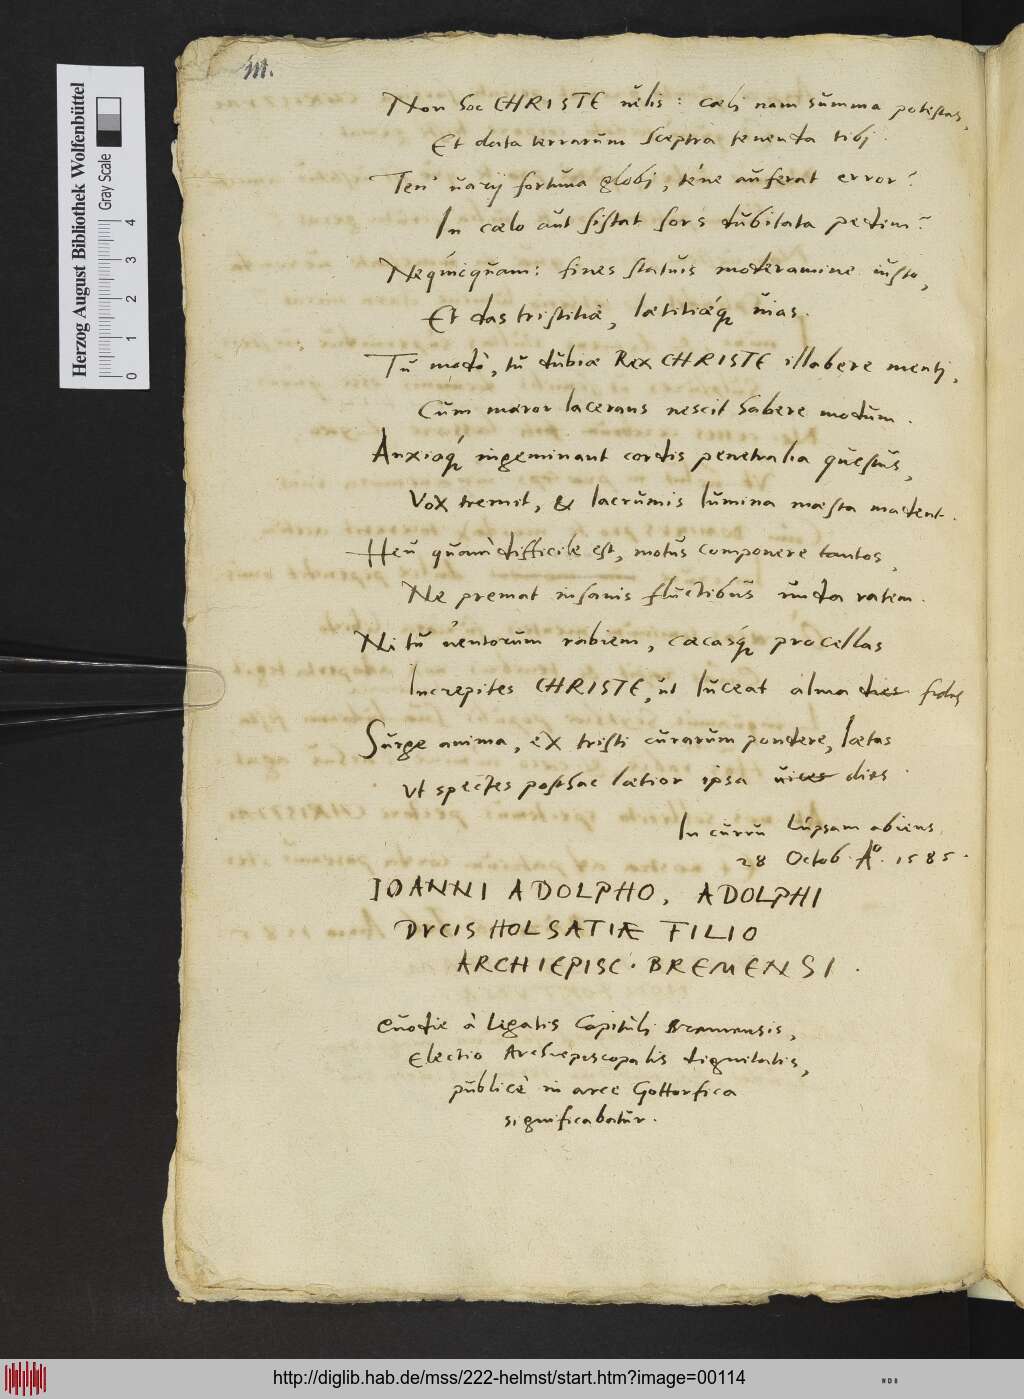 m.
Non hoc CHRISTE uelis: cælj nam summa potestas,
Et data terrarum sceptra tenenda tibj.
Ten' uarij fortuna globj, téne auferat error?
In cælo aut sistat sors dubitata pedem?
Nequicquam: fines statuis moderamine iusto,
Et das tristitiæ, lætitiæq́ uias.
Tu modò, tu dubiæ Rex CHRISTE illabere mentj,
Cum mæror lacerans nescit habere modum.
Anxiaq́ ingeminant cordis penetralia questus,
Vox tremit, & lacrumis lumina mæsta madent.
Heu quam difficile est, motus componere tantos,
Ne premat insanis fluctibus unda ratem.
Ni tu uentorum rabiem, cæcasq́ procellas
Increpites CHRISTE, ut luceat alma dies fides
Surge anima, ex tristi curarum pondere, lætas
Vt spectes posthac lætior ipsa uices dies.
In curru Lupsam abiens.
28 Octob. Aº. 1585.
IOANNI ADOLPHO, ADOLPHI
DVCIS HOLSATIÆ FILIO
ARCHIEPISC. BREMENSI.
Quo die à legatis Capitulj Bremensis,
Electio Archiepiscopalis dignitatis,
publicè in arce Gottorfica
significabatur.
Herzog August Bibliothek Wolfenbüttel
Gray Scale
0 1 2 3 4
http://diglib.hab.de/mss/222-helmst/start.htm?image=00114